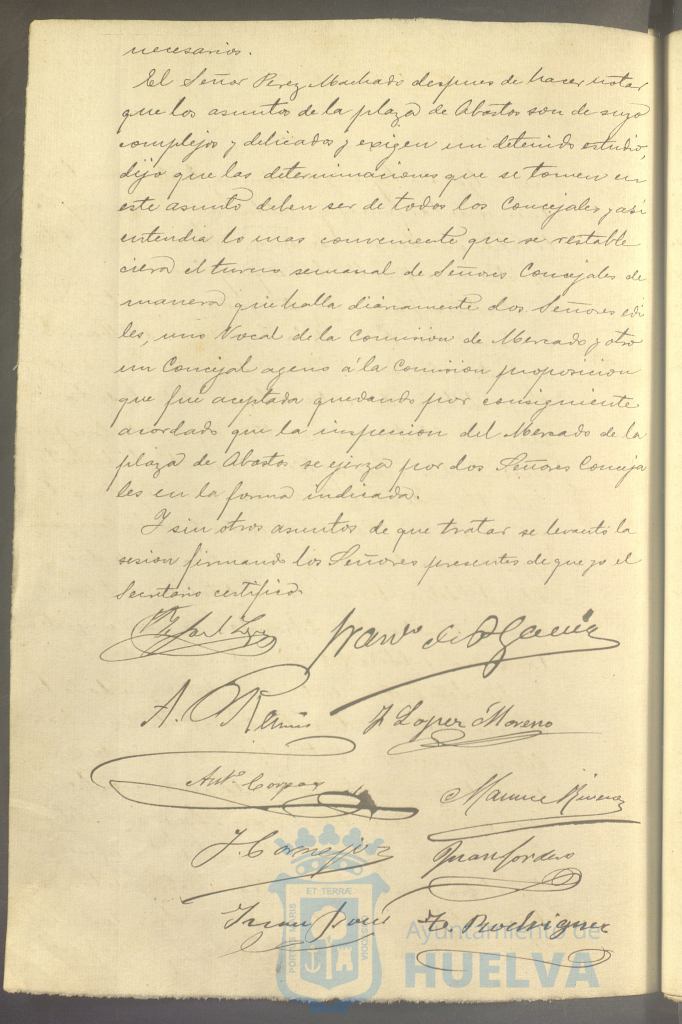 necesarios.
El Señor Perez Machado despues de hacer notar
que los asuntos de la plaza de Abastos son de suyo
complejos y delicados y exigen un detenido estudio,
dijo que las determinaciones que se tomen en
este asunto deben ser de todos los Concejales y asi
entendia lo mas conveniente que se restable
ciera el turno semanal de Señores Concejales de
manera que halla diariamente dos Señores edi
les, uno Vocal de la Comision de Mercado y otro
un Concejal ageno á la Comision proposicion
que fue aceptada quedando por consiguiente
acordado que la inspeccion del Mercado de la
plaza de Abastos se ejerza por dos Señores Conceja
les en la forma indicada.
Y sin otros asuntos de que tratar se levantó la
sesion firmando los Señores presentes de que yo el
Secretario certifico
Franco de P. Garcia
A. Ramis J Lopez Moreno
Anto. Corpas Manuel Rivera
J. Cornejo Juan Cordero
Rodriguez
ET TERRÆ
PORTUS MARIS
CUSTODIA
Ayuntamiento de
HUELVA